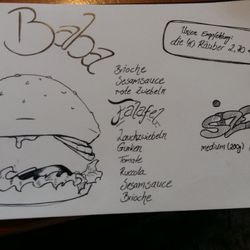 Baba
Unsere Empfehlung:
die 40 Räuber 2,70
Brioche
Sesamsauce
rote Zwiebeln
Falafel
Lauchzwiebeln
Gurken
Tomate
Ruccola
Sesamsauce
Brioche
medium (200g)